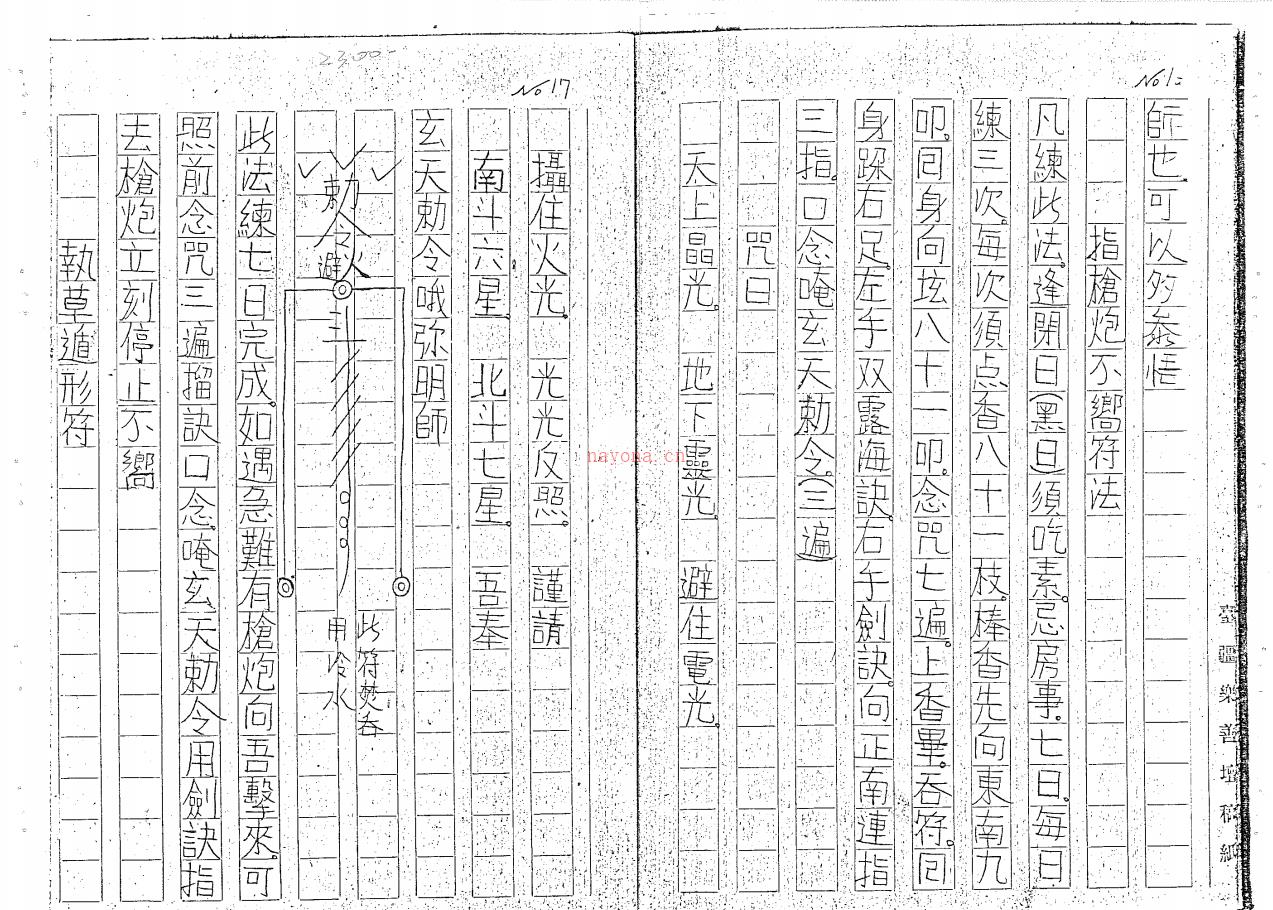 No1
師也.可以多參悟
指槍炮不嚮符法
凡練此法.逢閉日(黑日)須吃素.忌房事.七日.每日
練三次.每次須点香八十一枝.棒香先向東南九
叩.回身向坟八十一叩.念咒七遍.上香畢.吞符.回
身跺右足.左手双露海訣.右手劍訣.向正南連指
三指.口念唵玄天勅令.(三遍)
咒曰
天上晶光.地下靈光.避住電光.
臺疆樂善壇稿紙
2300-
No17
攝住火光.光光反照.謹請
南斗六星.北斗七星.吾奉
玄天勅令哦弥明師
勅令避火
此符焚吞
用冷水
此法練七日完成.如遇急難有槍炮向吾擊來.可
照前念咒三遍搯訣口念.唵玄天勅令用劍訣指
去槍炮立刻停止不嚮
執草遁形符
nayona.cn